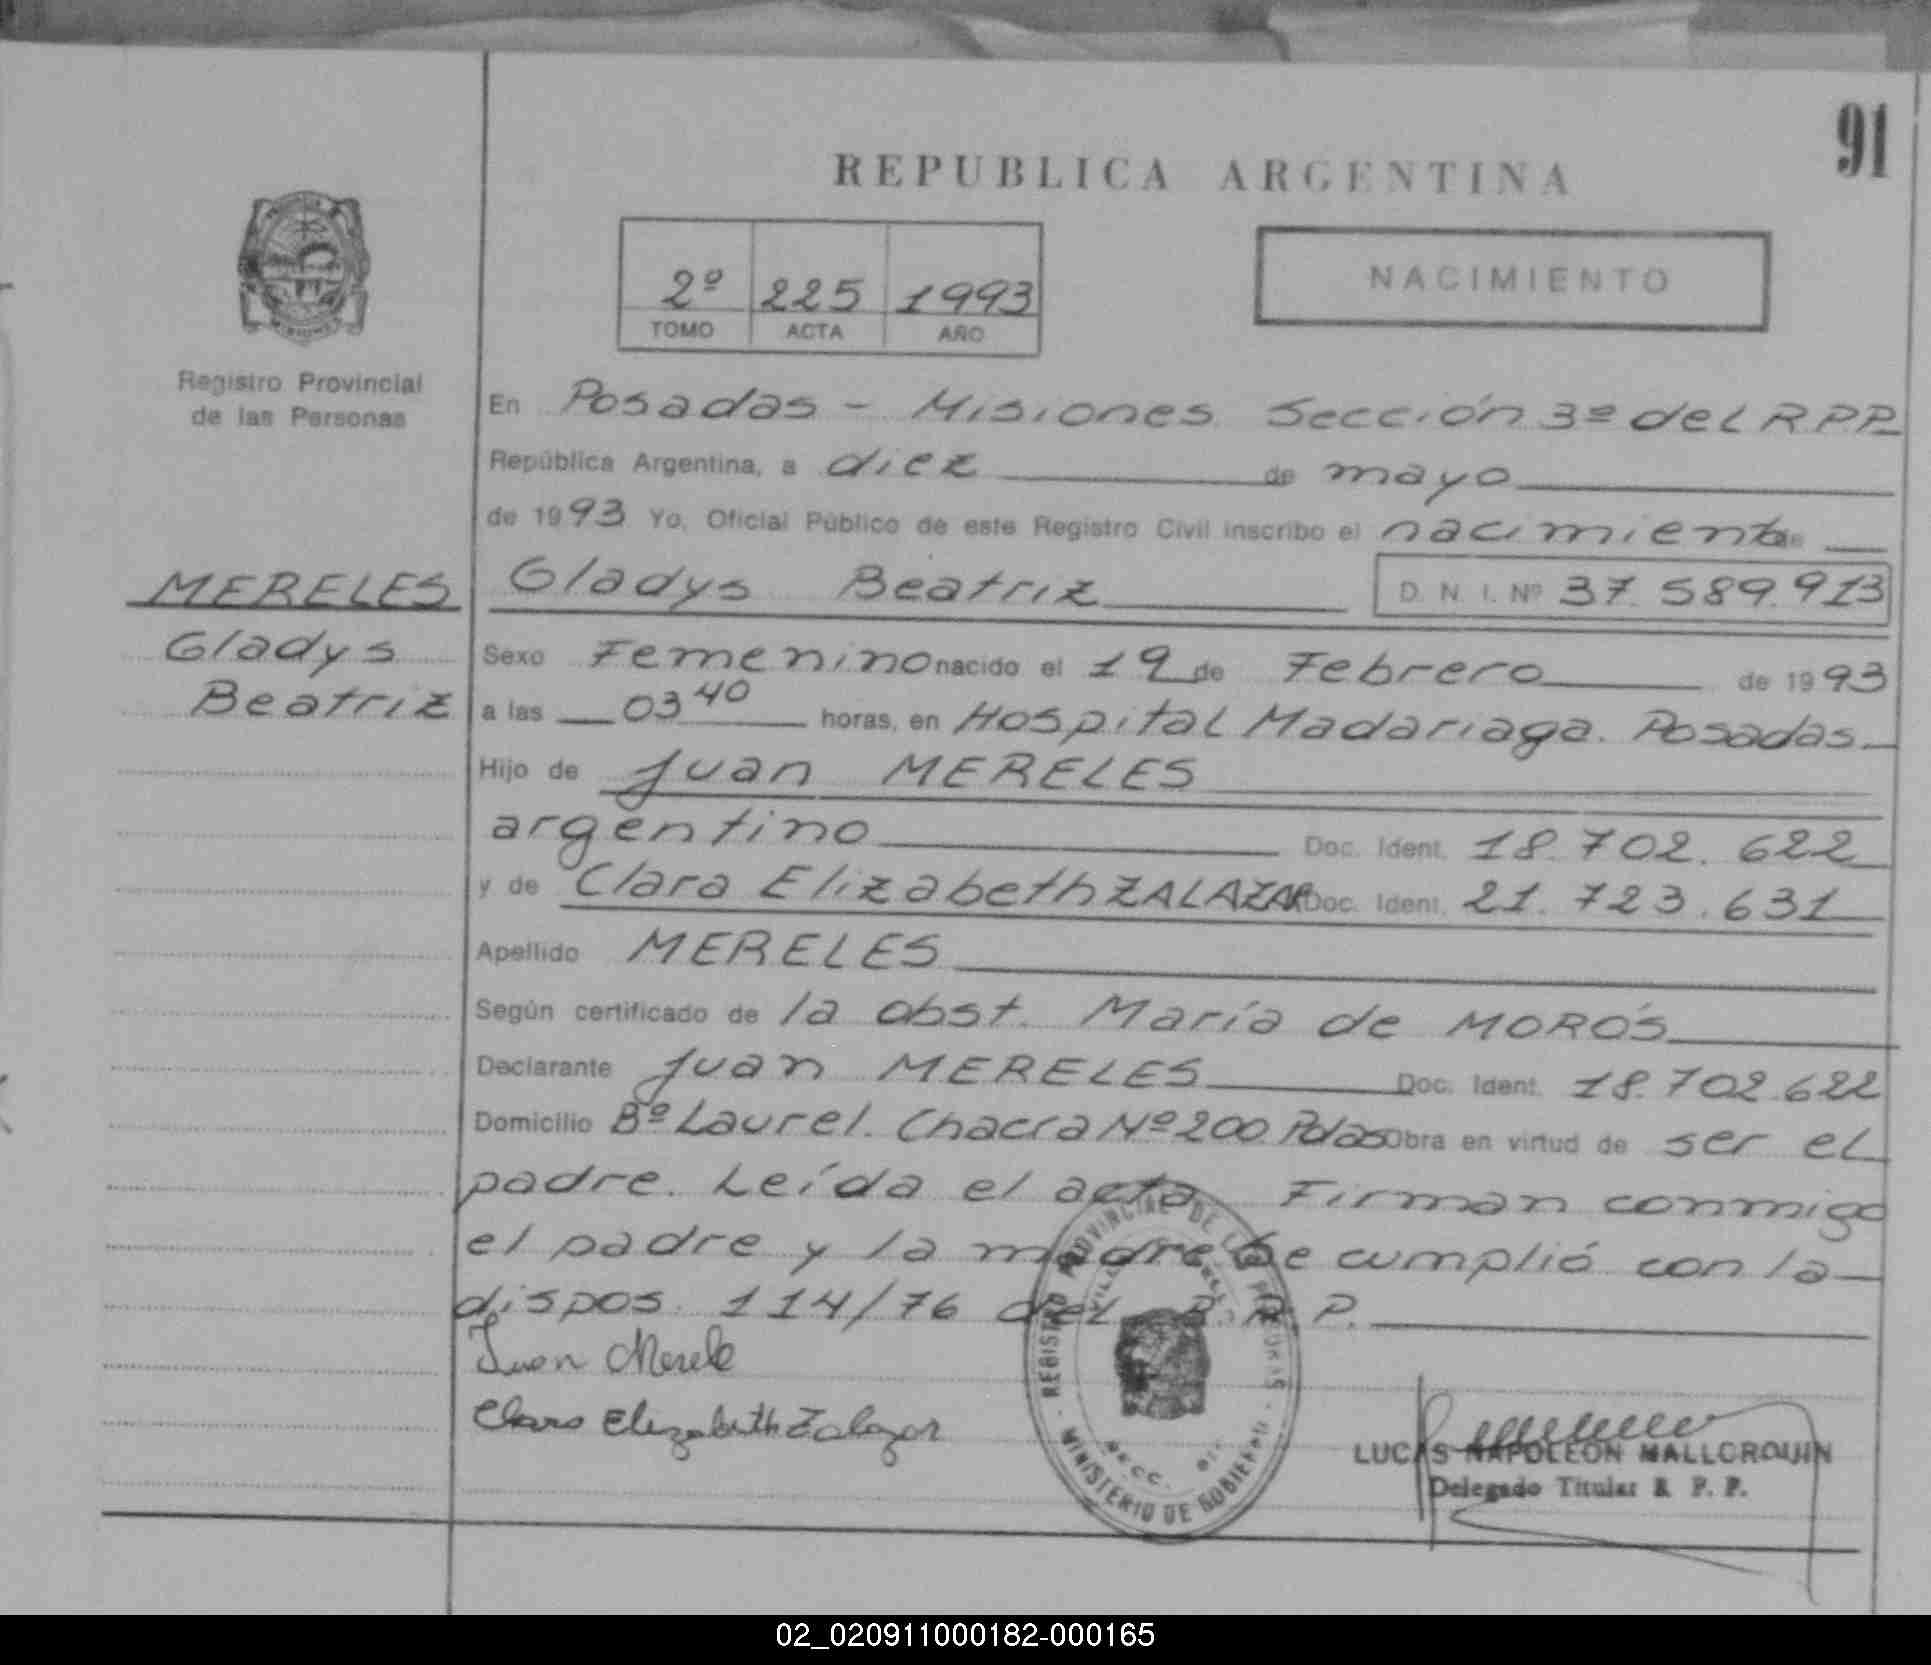 91
REPUBLICA ARGENTINA
2º 225 1993
TOMO ACTA AÑO
NACIMIENTO
Registro Provincial
de las Personas
En Posadas - Misiones. Sección 3º del R.P.P.
República Argentina, a diez de mayo
de 1993 Yo, Oficial Público de este Registro Civil inscribo el nacimiento de
MERELES Gladys Beatriz D. N. I. Nº 37.589.913
Gladys
Beatriz
Sexo Femenino nacido el 19 de Febrero de 1993
a las 03 40 horas, en Hospital Madariaga. Posadas
Hijo de Juan MERELES
argentino Doc. Ident. 18.702.622
y de Clara Elizabeth ZALAZAR Doc. Ident. 21.723.631
Apellido MERELES
Según certificado de la obst. María de MOROS
Declarante Juan MERELES Doc. Ident. 18.702.622
Domicilio Bº Laurel. Chacra Nº 200 Pdas Obra en virtud de ser el
padre. Leída el acta Firman conmigo
el padre y la madre Se cumplió con la
dispos. 114/76 del R.P.P.
Juan Merele
Clara Elizabeth Zalazar
REGISTRO PROVINCIAL DE LAS PERSONAS
MINISTERIO DE GOBIERNO
SECC.
LUCAS NAPOLEON MALLORQUIN
Delegado Titular R P. P.
02_020911000182-000165